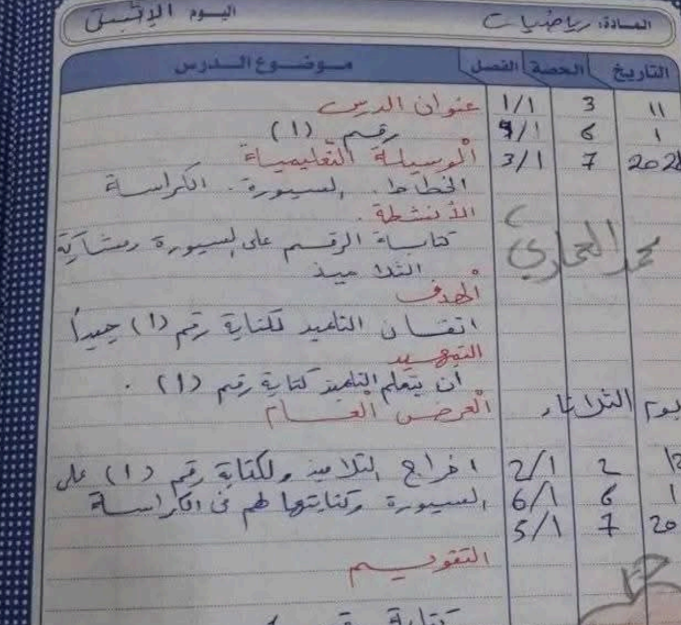 المادة: رياضيات اليوم الإثنين
التاريخ الحصة الفصل موضوع الدرس
11 3 1/1 عنوان الدرس
1 6 9/1 رقم (1)
202 7 3/1 الوسيلة التعليمية
الخطاط. السبورة. الكراسة
الأنشطة.
كتابة الرقم على السبورة ومشاركة
محمد العماري
التلاميذ
الهدف
اتقان التلميذ لكتابة رقم (1) جيداً
التمهيد
أن يتعلم التلميذ كتابة رقم (1).
يوم الثلاثاء العرض العام
12 2 2/1 اخراج التلاميذ ولكتابة رقم (1) على
1 6 6/1 السبورة وكتابتها لهم في الكراسة
20 7 5/1
التقويم
كتابة